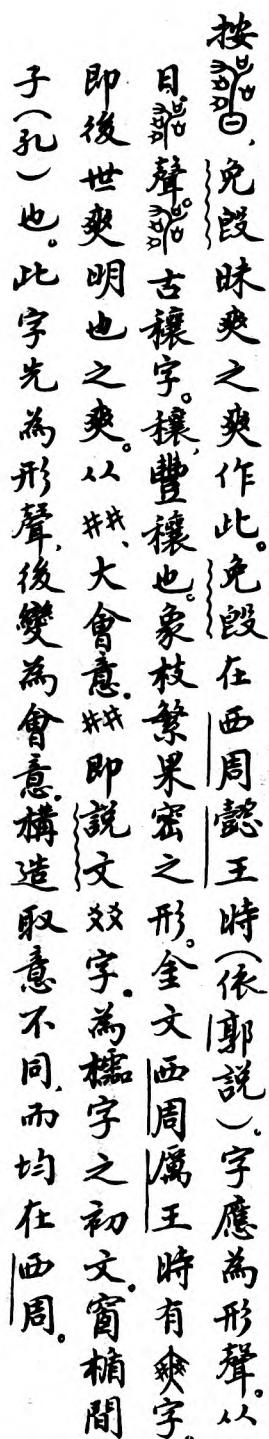 按，免𣪘昧爽之爽作此。免𣪘在西周懿王時（依郭說）。字應為形聲。从
日，聲。古穰字。穰，豐穰也。象枝繁果密之形。金文西周厲王時有字。
即後世爽明也之爽。从、大會意。即說文㸚字。為櫺字之初文。窗楯間
子（孔）也。此字先為形聲，後變為會意。構造取意不同，而均在西周。